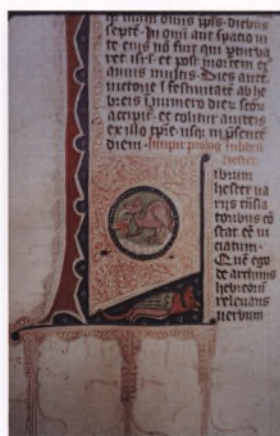 septē. In om̄i aūt spatio ui
te eius nō fuit qui pturba
ret isrl. et post mortem eī
annis multis. Dies autē
uictorie festiuitatē ab he
breis ī numero dierꝝ scōꝝ
accipit. et colitur a iudeis
ex illo tpre usq; ī presentē
diem. Incipit prolog in librū
hester
ibrum
hester ua
riis trāsla
toribus cō
stat eē ui
ciatum.
Quē ego
de archiuis
hebreoꝝ
releuans
uerbum